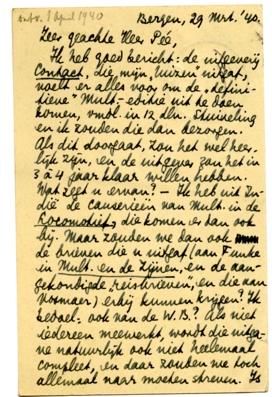 antw. 1 April 1940
Bergen, 29 Mrt. '40.
Zeer geachte Heer Peé,
Ik heb goed bericht: de uitgeverij
Contact, die mijn "Huizen" uitgaf,
voelt er alles voor om de "defini-
tieve" Mult.-editie uit te doen
komen, vmbl. in 12 dln. Stuiveling
en ik zouden die dan bezorgen.
Als dit doorgaat, zou het wel heer-
lijk zijn, en de uitgever zou het in
3 à 4 jaar klaar willen hebben.
Wat zegt u ervan? – Ik heb uit In-
dië de causerieën van Mult. in de
Locomotief, die komen er dan ook
bij. Maar zouden we dan ook
de brieven die u uitgaf (aan Funke
in Mult. en de Zijnen, en de aan-
gekondigde reisbrieven, en die aan
Vosmaer) erbij kunnen krijgen? Ik
bedoel: ook van de W.B.? Als niet
iedereen meewerkt, wordt die uitga-
ve natuurlijk ook niet heelemaal
compleet, en daar zouden we toch
allemaal naar moeten streven. Is